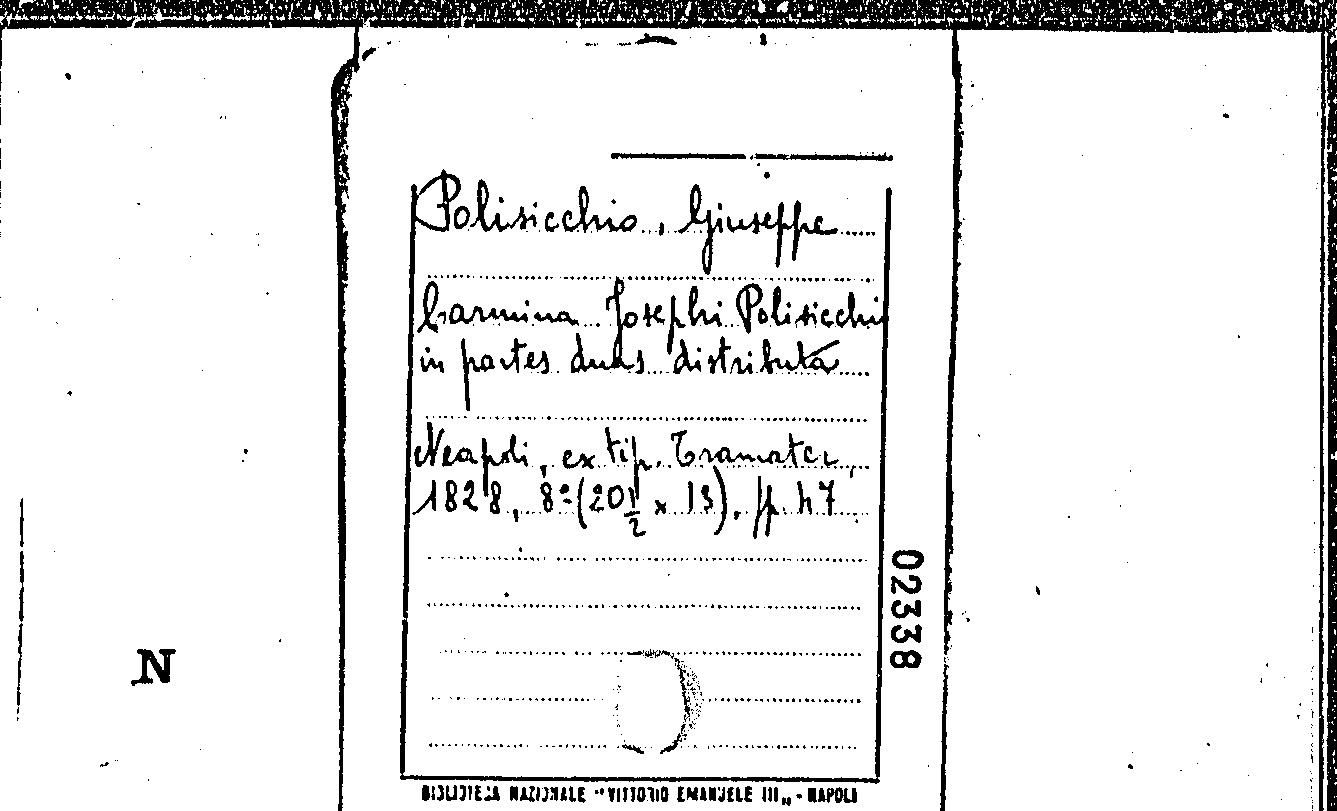 Polisicchio, Giuseppe
Carmina Josephi Polisicchi
in partes duas distributa
Neapoli, ex tip. Tramater,
1828, 8º (20 1/2 x 13), p. 47
02338
N
BIBLIOTECA NAZIONALE "VITTORIO EMANUELE III" - NAPOLI